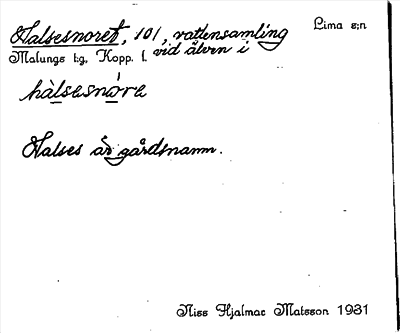 Halsesnoret, 101, vattensamling Lima s:n
Malungs t:g, Kopp. l. vid älven i
hàlsesnóre
Halses är gårdsnamn.
Niss Hjalmar Matsson 1931